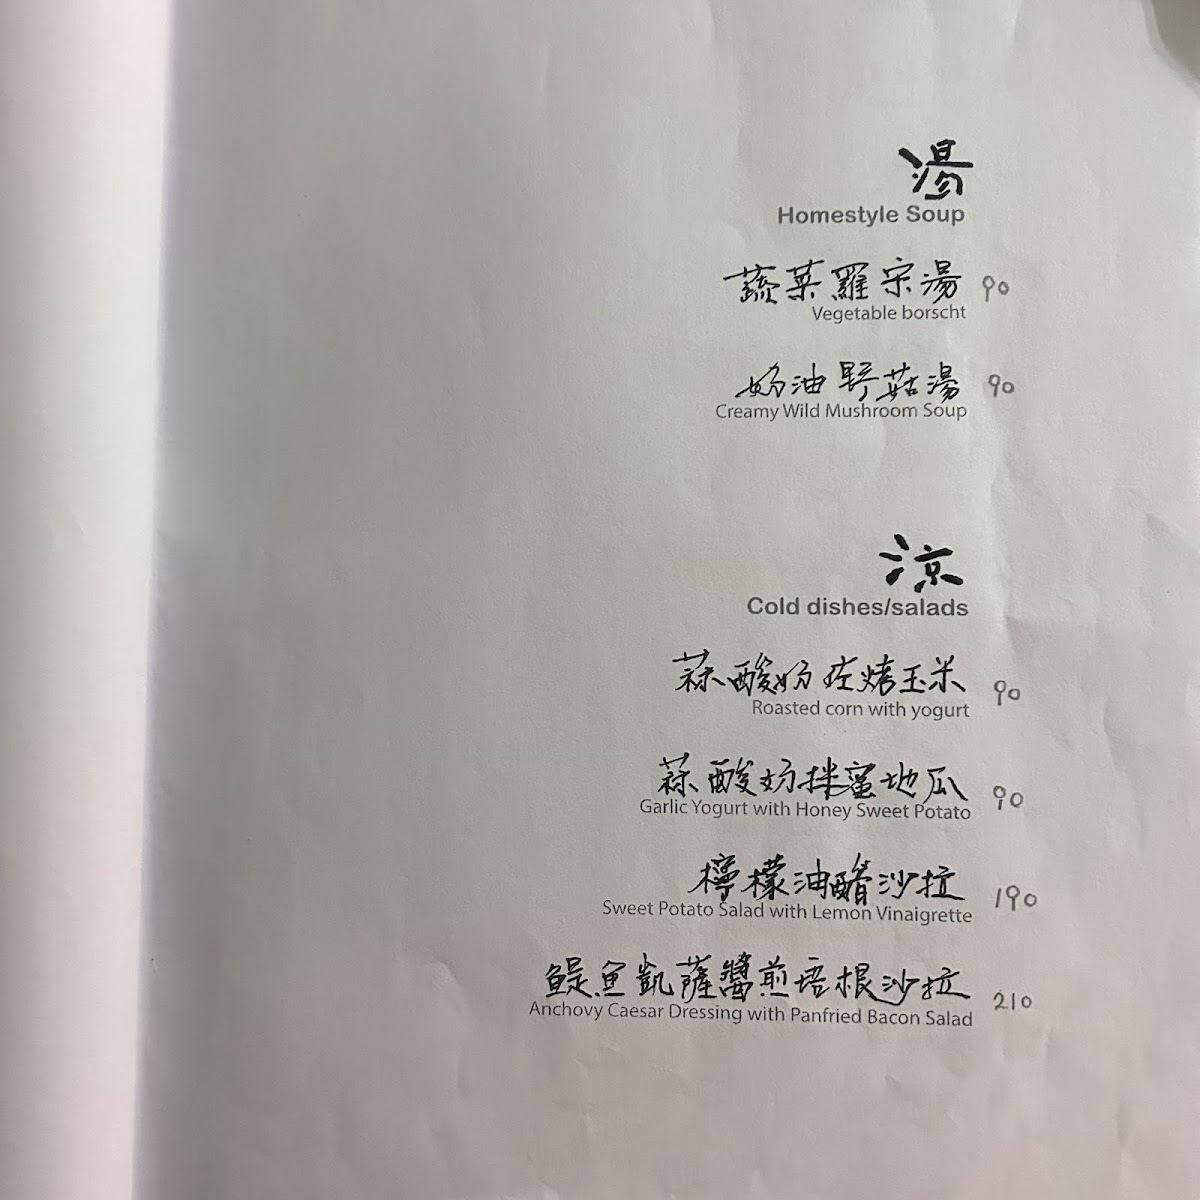 湯
Homestyle Soup
蔬菜羅宋湯 90
Vegetable borscht
奶油野菇湯 90
Creamy Wild Mushroom Soup
涼
Cold dishes/salads
蒜酸奶炭烤玉米 90
Roasted corn with yogurt
蒜酸奶拌蜜地瓜 90
Garlic Yogurt with Honey Sweet Potato
檸檬油醋沙拉 190
Sweet Potato Salad with Lemon Vinaigrette
鯷魚凱薩醬煎培根沙拉 210
Anchovy Caesar Dressing with Panfried Bacon Salad